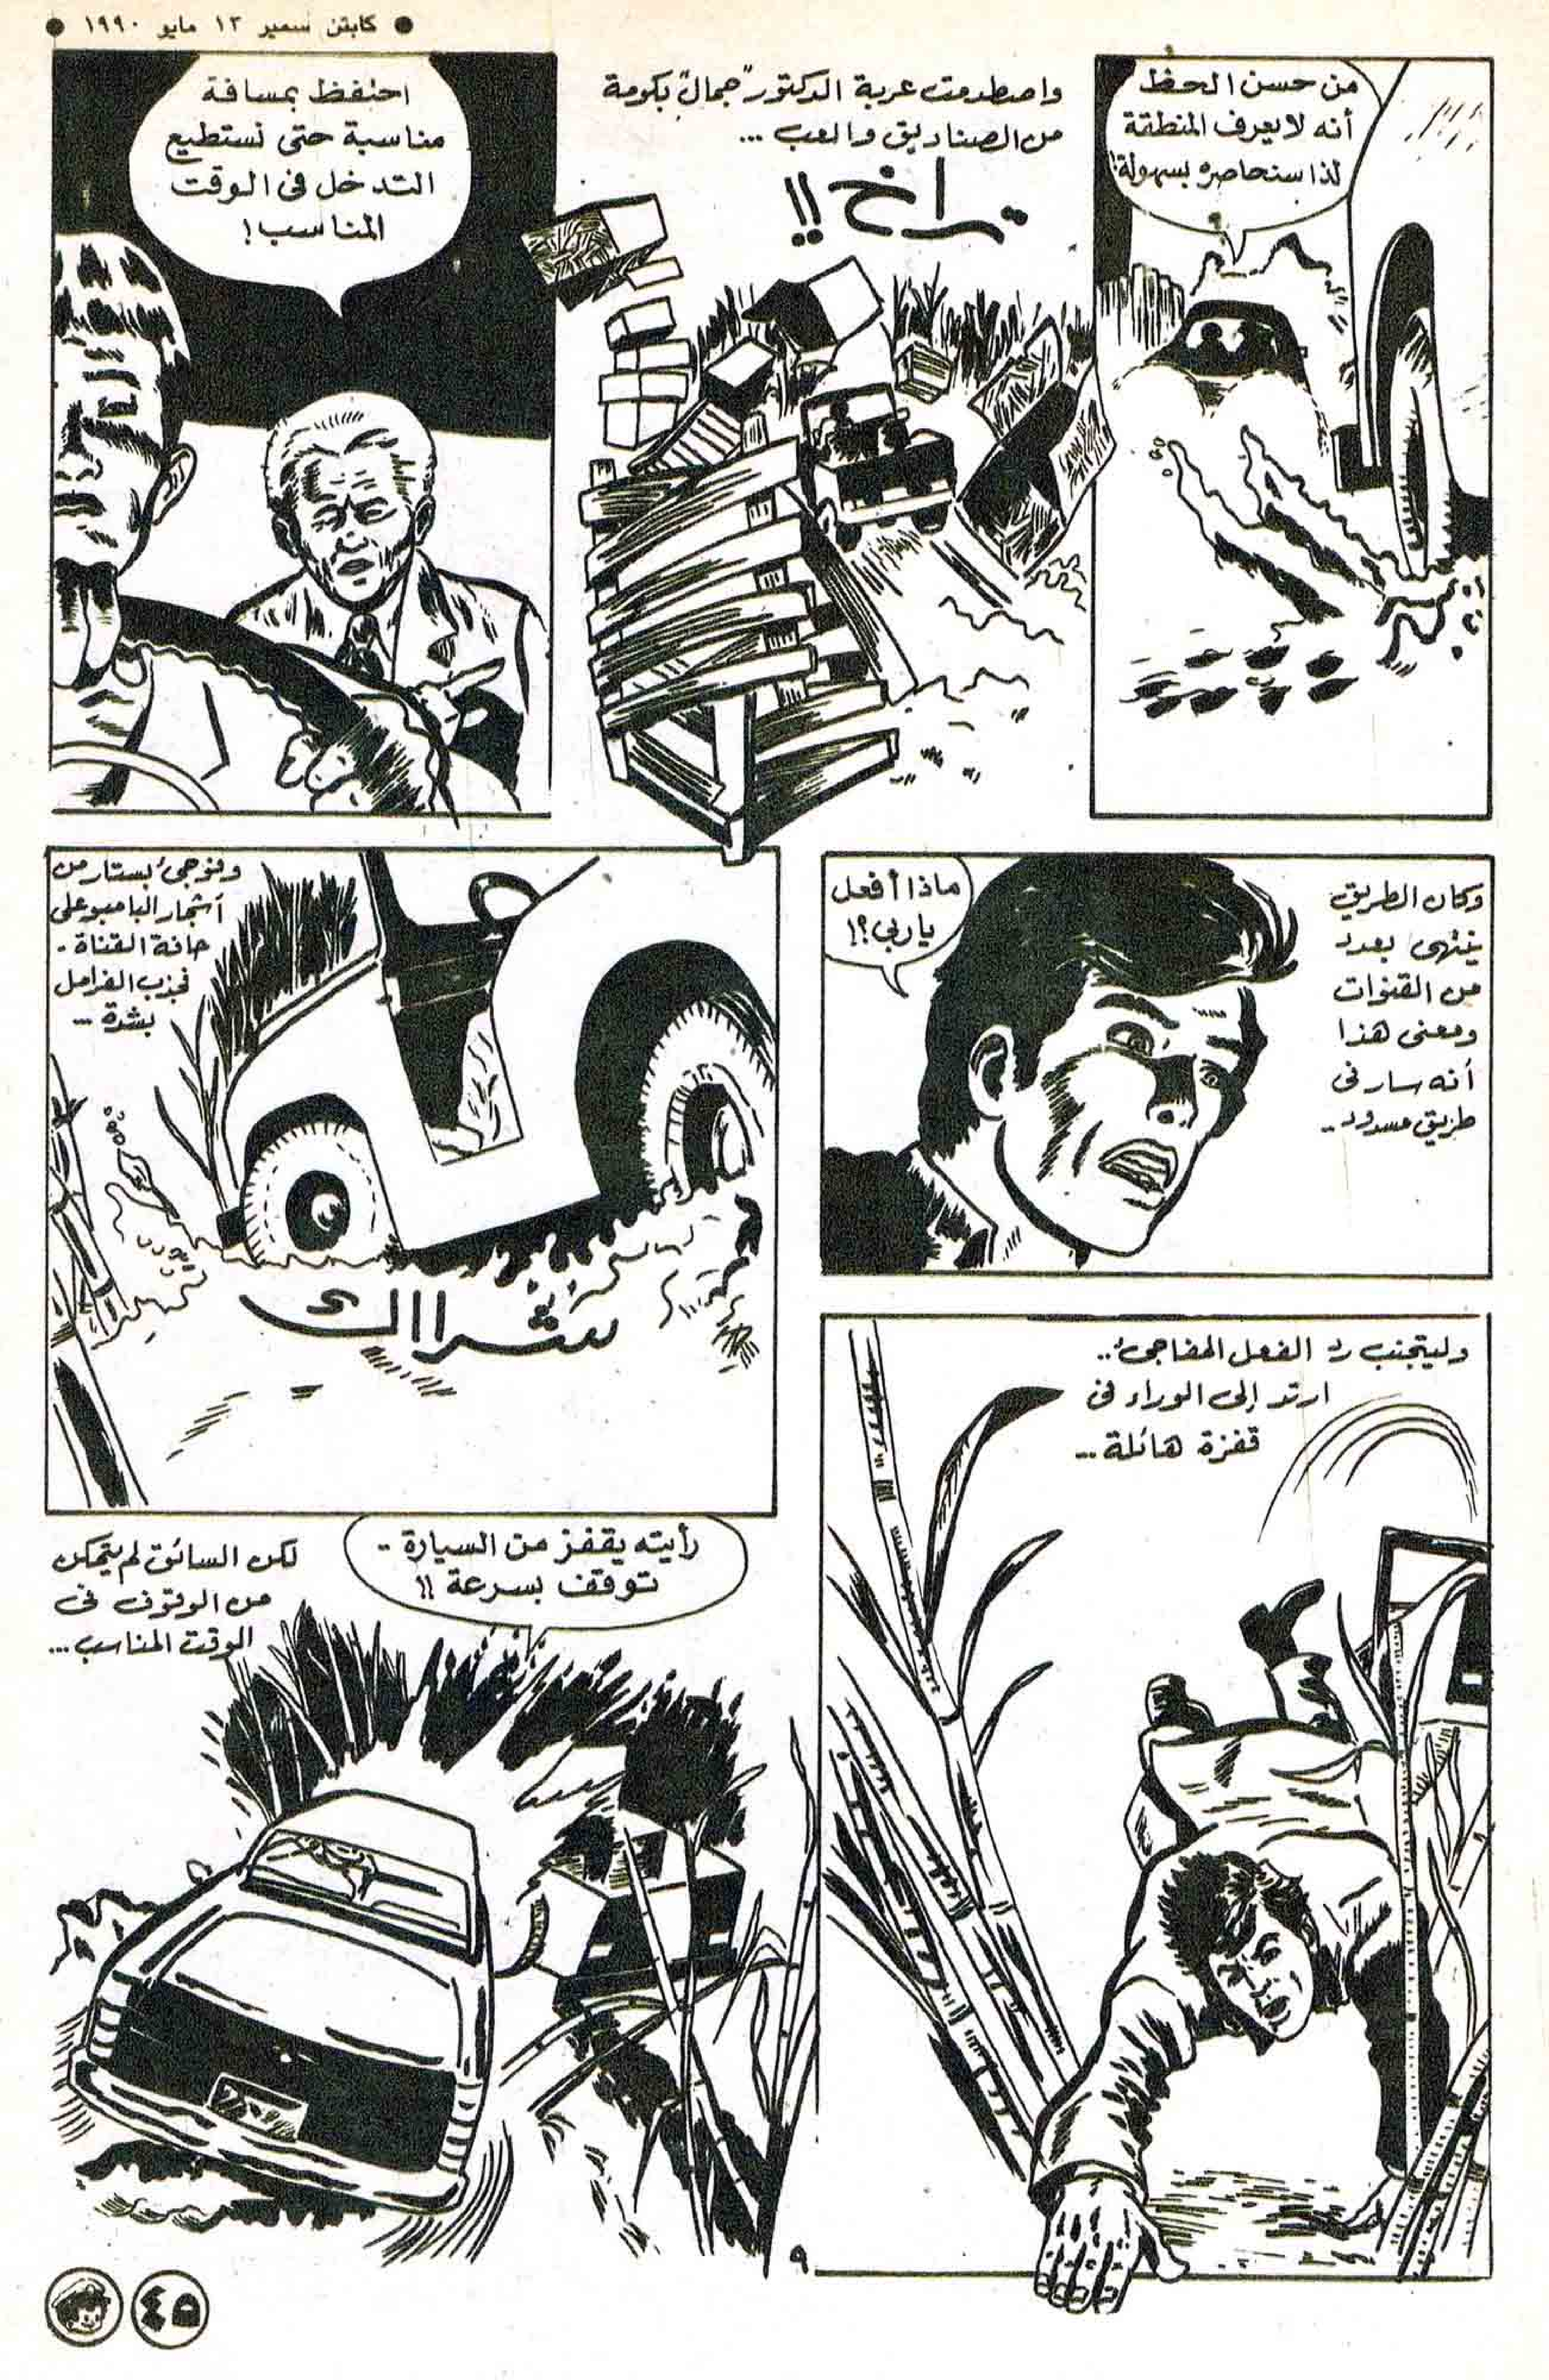 ● كابتن سمير ١٣ مايو ١٩٩٠ ●
من حسن الحظ
أنه لا يعرف المنطقة
لذا سنحاصره بسهولة!
واصطدمت عربة الدكتور "جمال" بكومة
من الصناديق والعب ...
تراخ !!
احتفظ بمسافة
مناسبة حتى نستطيع
التدخل فى الوقت
المناسب !
وكان الطريق
ينتهى بعدد
من القنوات
ومعنى هذا
أنه سار فى
طريق مسدود ..
ماذا أفعل
ياربى ؟!
وفوجئ بستار من
أشجار البامبو على
حافة القناة .
فجذب الفرامل
بشدة ...
شرااك
وليتجنب رد الفعل المفاجئ ..
ارتد إلى الوراء فى
قفزة هائلة ...
رأيته يقفز من السيارة ..
توقف بسرعة !!
لكن السائق لم يتمكن
من الوقوف فى
الوقت المناسب ...
٩
٤٥